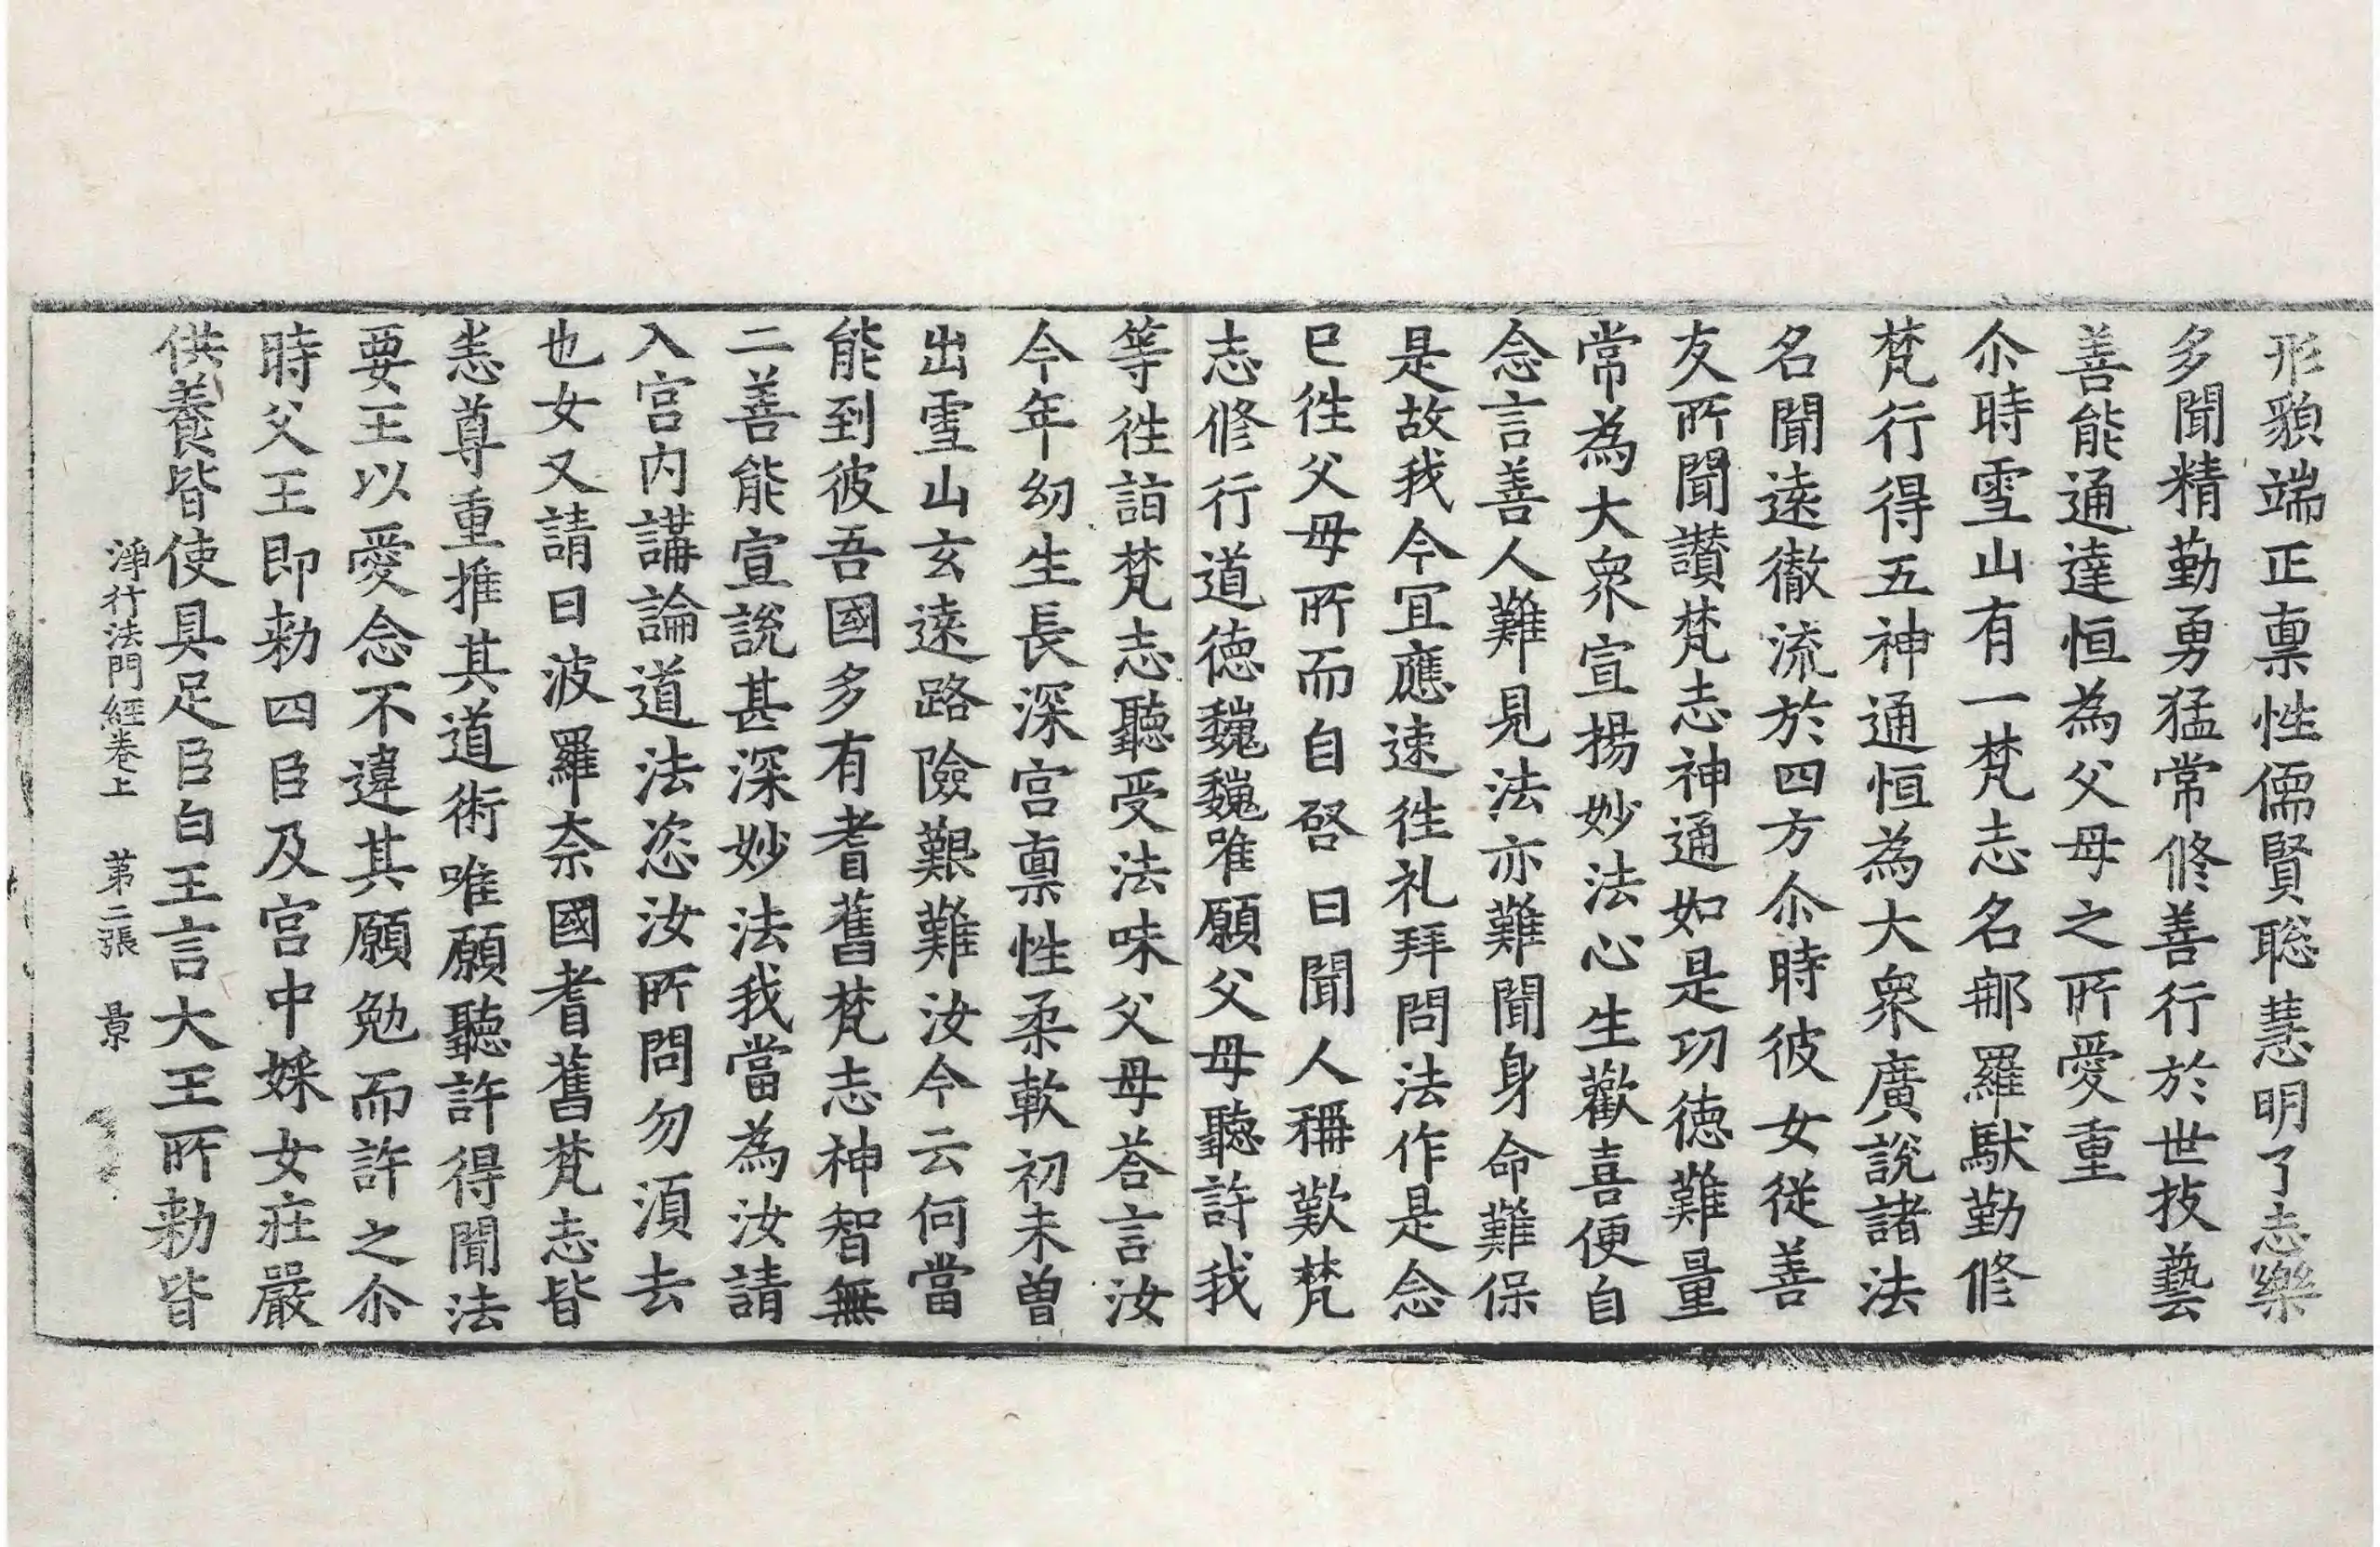 形貌端正禀性儒賢聡慧明了志樂
多聞精勤勇猛常修善行於世技藝
善能通達恒為父母之所愛重
尒時雪山有一梵志名那羅馱勤修
梵行得五神通恒為大衆廣說諸法
名聞遠徹流於四方尒時彼女従善
友所聞讃梵志神通如是功徳難量
常為大衆宣揚妙法心生歡喜便自
念言善人難見法亦難聞身命難保
是故我今冝應速往礼拜問法作是念
已往父母所而自啓曰聞人稱歎梵
志修行道徳巍巍唯願父母聽許我
等往詣梵志聽受法味父母荅言汝
今年幼生長深宫禀性柔軟初未曽
出雪山玄遠路險艱難汝今云何當
能到彼吾國多有耆舊梵志神智無
二善能宣說甚深妙法我當為汝請
入宫内講論道法恣汝所問勿湏去
也女又請曰波羅奈國耆舊梵志皆
悉尊重推其道術唯願聽許得聞法
要王以愛念不違其願勉而許之尒
時父王即勑四臣及宫中婇女莊嚴
供養皆使具足臣白王言大王所勑皆
淨行法門經卷上 第二張 景